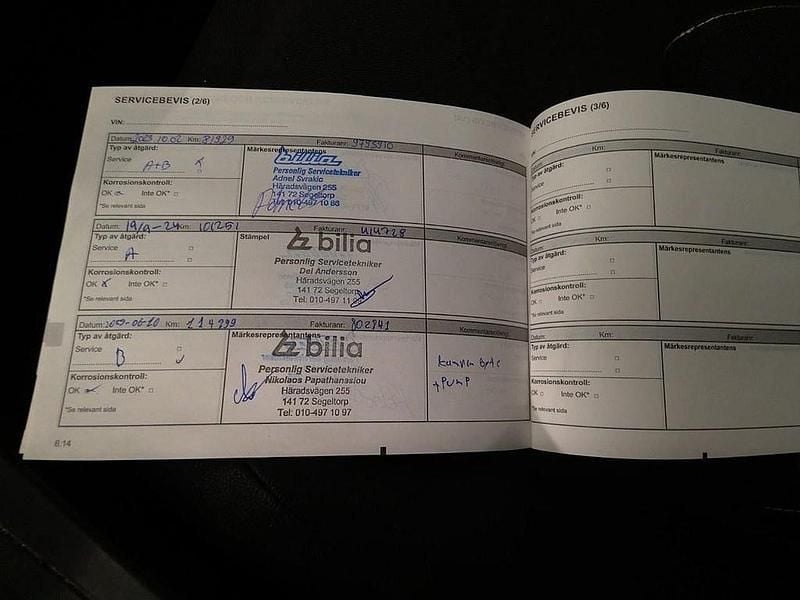 SERVICEBEVIS (2/6)
VIN:
Datum: 2023.10.02 Km: Fakturanr:
Typ av åtgärd: Märkesrepresentantens
Service A+B
bilia
Personlig Servicetekniker
Adnel Svrakic
Häradsvägen 255
141 72 Segeltorp
Korrosionskontroll:
OK Inte OK*
*Se relevant sida
Kommentarer
Datum: 19/9-24 Km: 101251 Fakturanr: 414728
Typ av åtgärd: Stämpel
Service A
bilia
Personlig Servicetekniker
Del Andersson
Häradsvägen 255
141 72 Segeltorp
Tel: 010-497
Korrosionskontroll:
OK Inte OK*
*Se relevant sida
Kommentarer
Datum: Km: 114999 Fakturanr: 802841
Typ av åtgärd: Märkesrepresentantens
Service B
bilia
Personlig Servicetekniker
Nikolaos Papathanasiou
Häradsvägen 255
141 72 Segeltorp
Tel: 010-497 10 97
Korrosionskontroll:
OK Inte OK*
*Se relevant sida
Kommentarer
+ PUMP
6:14
SERVICEBEVIS (3/6)
Datum: Km: Fakturanr:
Typ av åtgärd: Märkesrepresentantens
Service
Korrosionskontroll:
OK Inte OK*
*Se relevant sida
Datum: Km: Fakturanr:
Typ av åtgärd: Märkesrepresentantens
Service
Korrosionskontroll:
OK Inte OK*
*Se relevant sida
Datum: Km: Fakturanr:
Typ av åtgärd: Märkesrepresentantens
Service
Korrosionskontroll:
OK Inte OK*
*Se relevant sida